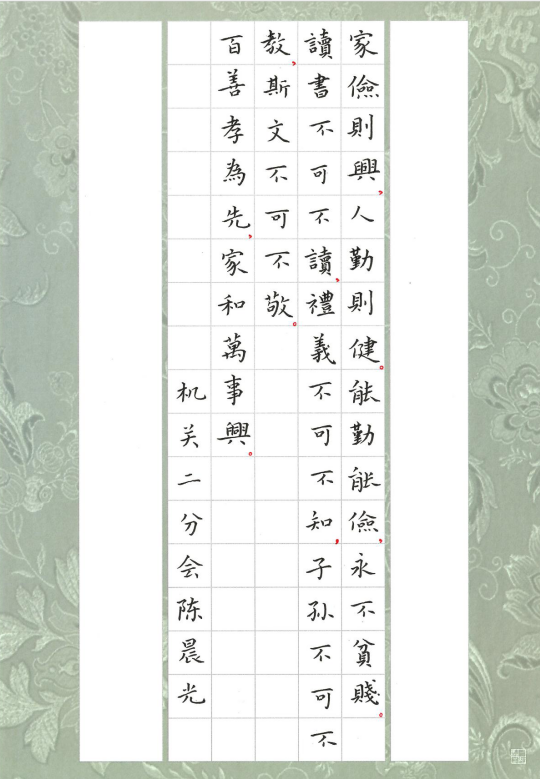 家儉則興，人勤則健。能勤能儉，永不貧賤。
讀書不可不讀，禮義不可不知，子孙不可不
教，斯文不可不敬。
百善孝為先，家和萬事興。
机关二分会陈晨光